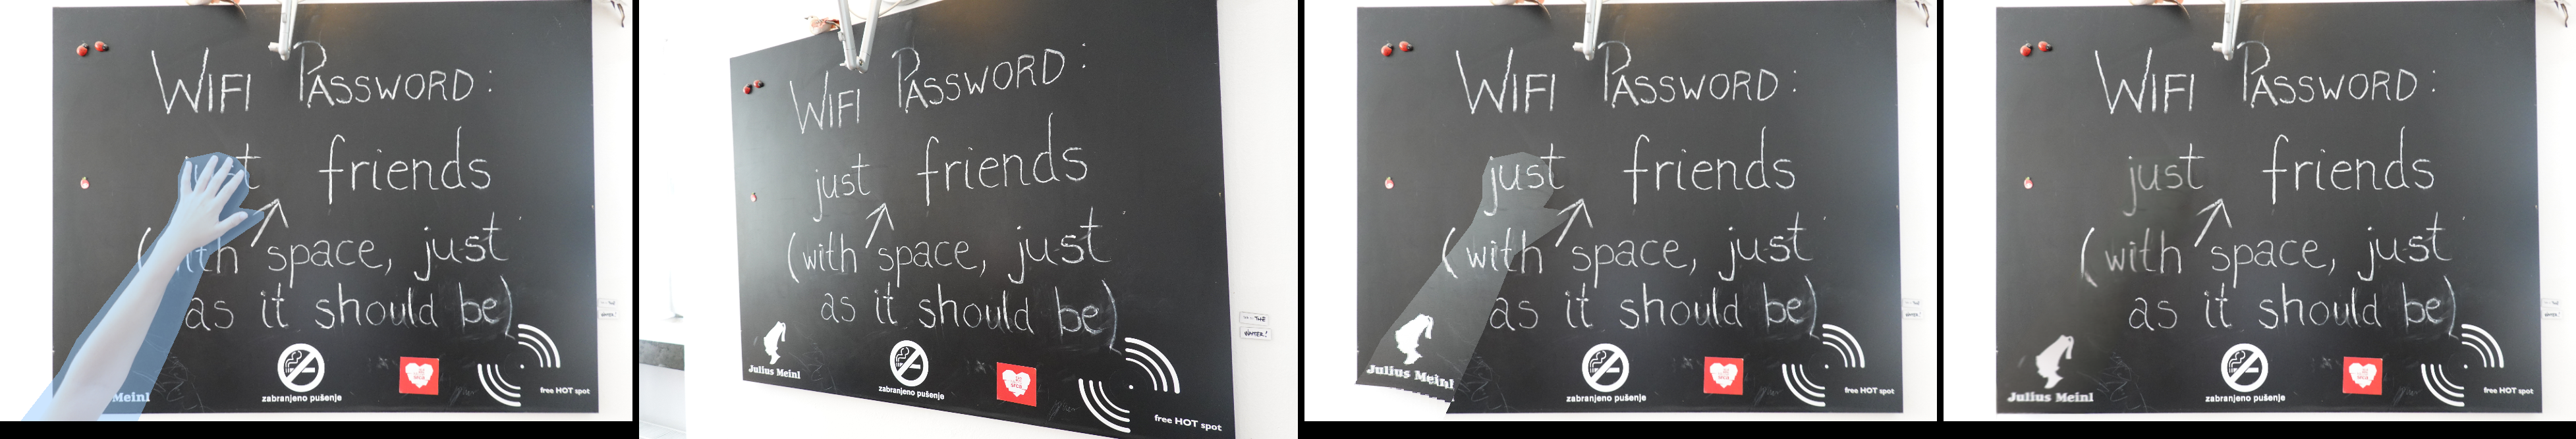 WIFI PASSWORD:
just friends
(with space, just
as it should be)
Meinl
zabranjeno pušenje
free HOT spot
WIFI PASSWORD:
just friends
(with space, just
as it should be)
Julius Meinl
zabranjeno pušenje
free HOT spot
THE
WINTER!
WIFI PASSWORD:
just friends
(with space, just
as it should be)
Julius Meinl
zabranjeno pušenje
free HOT spot
WIFI PASSWORD:
just friends
(with space, just
as it should be)
Julius Meinl
zabranjeno pušenje
free HOT spot